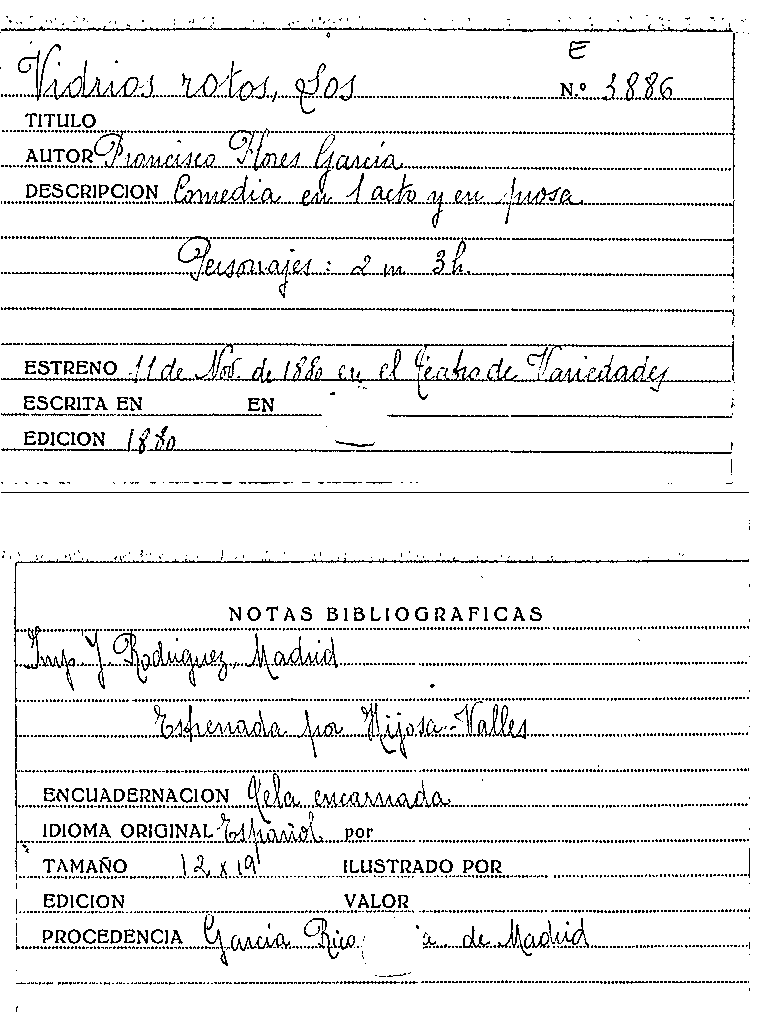 E
Vidrios rotos, Los
N.º 3886
TITULO
AUTOR Francisco Flores García
DESCRIPCION Comedia en 1 acto y en prosa
Personajes: 2 m 3 h.
ESTRENO 11 de Nov. de 1880 en el Teatro de Variedades
ESCRITA EN EN
EDICION 1880
NOTAS BIBLIOGRAFICAS
Imp. J. Rodriguez, Madrid
Estrenada por Hijosa-Valles
ENCUADERNACION Tela encarnada
IDIOMA ORIGINAL Español por
TAMAÑO 12 x 19 ILUSTRADO POR
EDICION VALOR
PROCEDENCIA García Rico a de Madrid